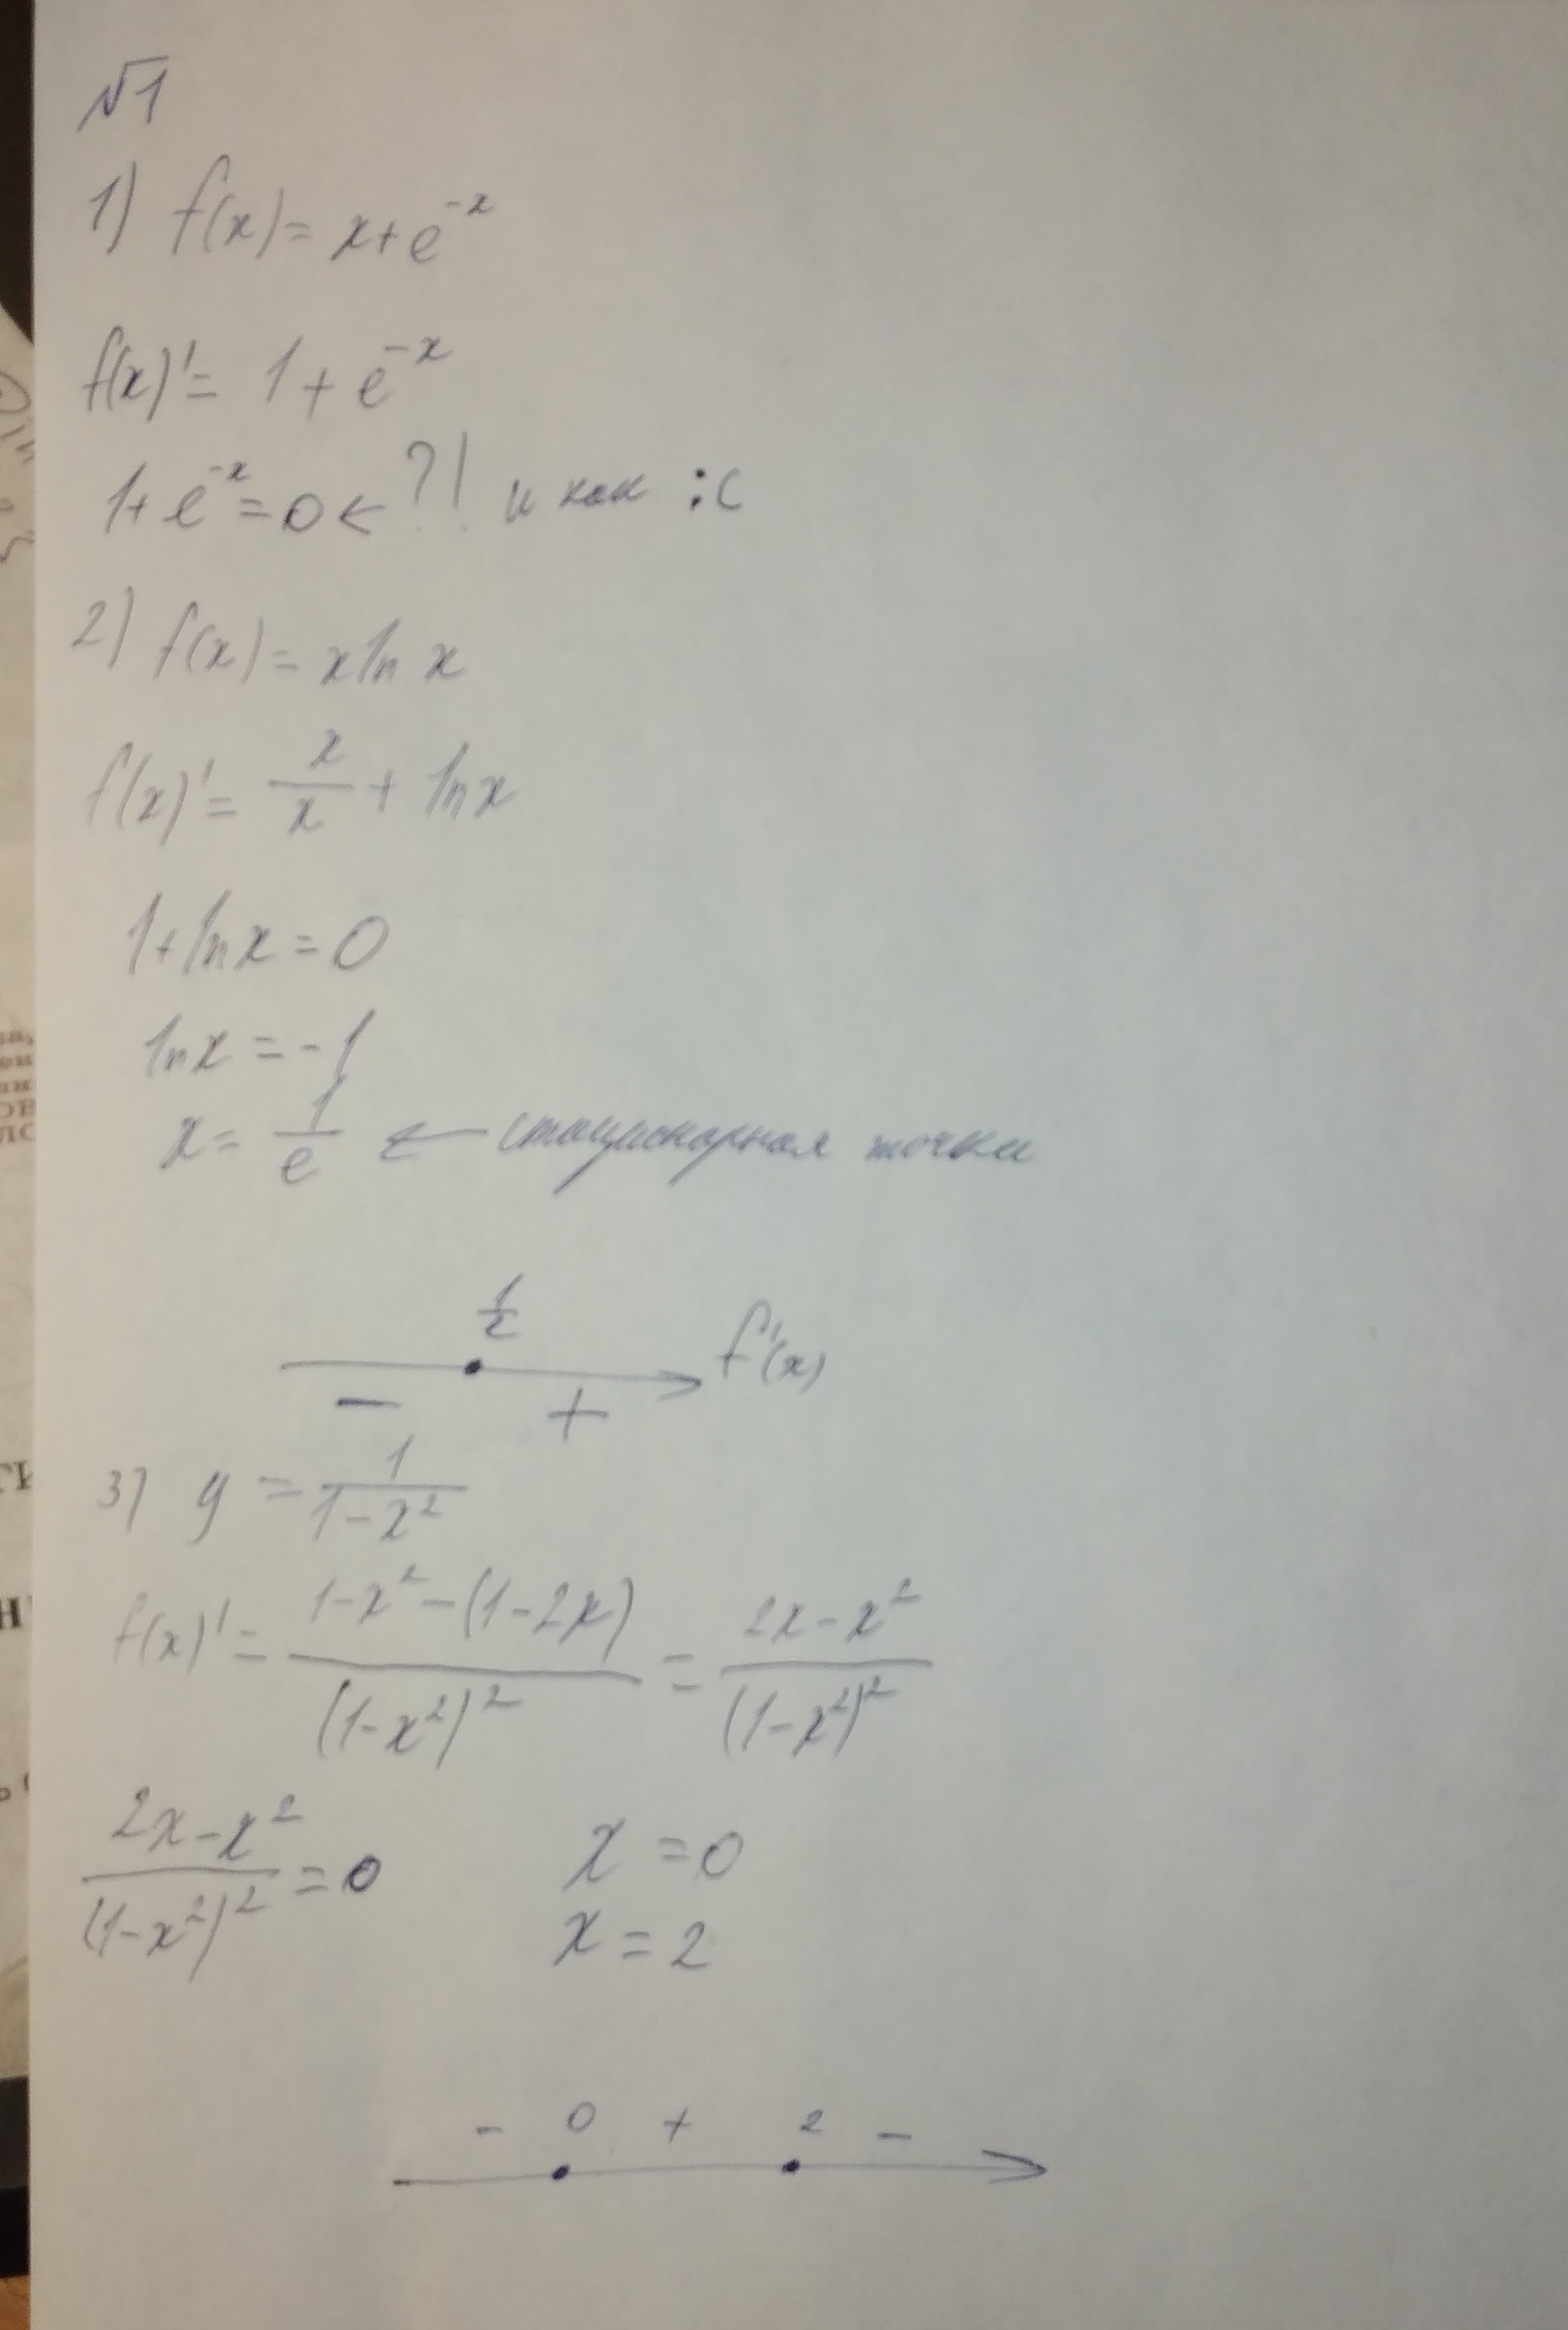 №1
1) f(x) = x+e^{-x}
f(x)' = 1 + e^{-x}
1+e^{-x} = 0 ← ?! и как :c
2) f(x) = x ln x
f(x)' = x/x + ln x
1+ln x = 0
ln x = -1
x = 1/e ← стационарная точки
1/2
f'(x)
- +
3) y = 1/(1-x²)
f(x)' = (1-x²-(1-2x))/(1-x²)² = (2x-x²)/(1-x²)²
(2x-x²)/(1-x²)² = 0 x = 0
x = 2
- 0 + 2 -